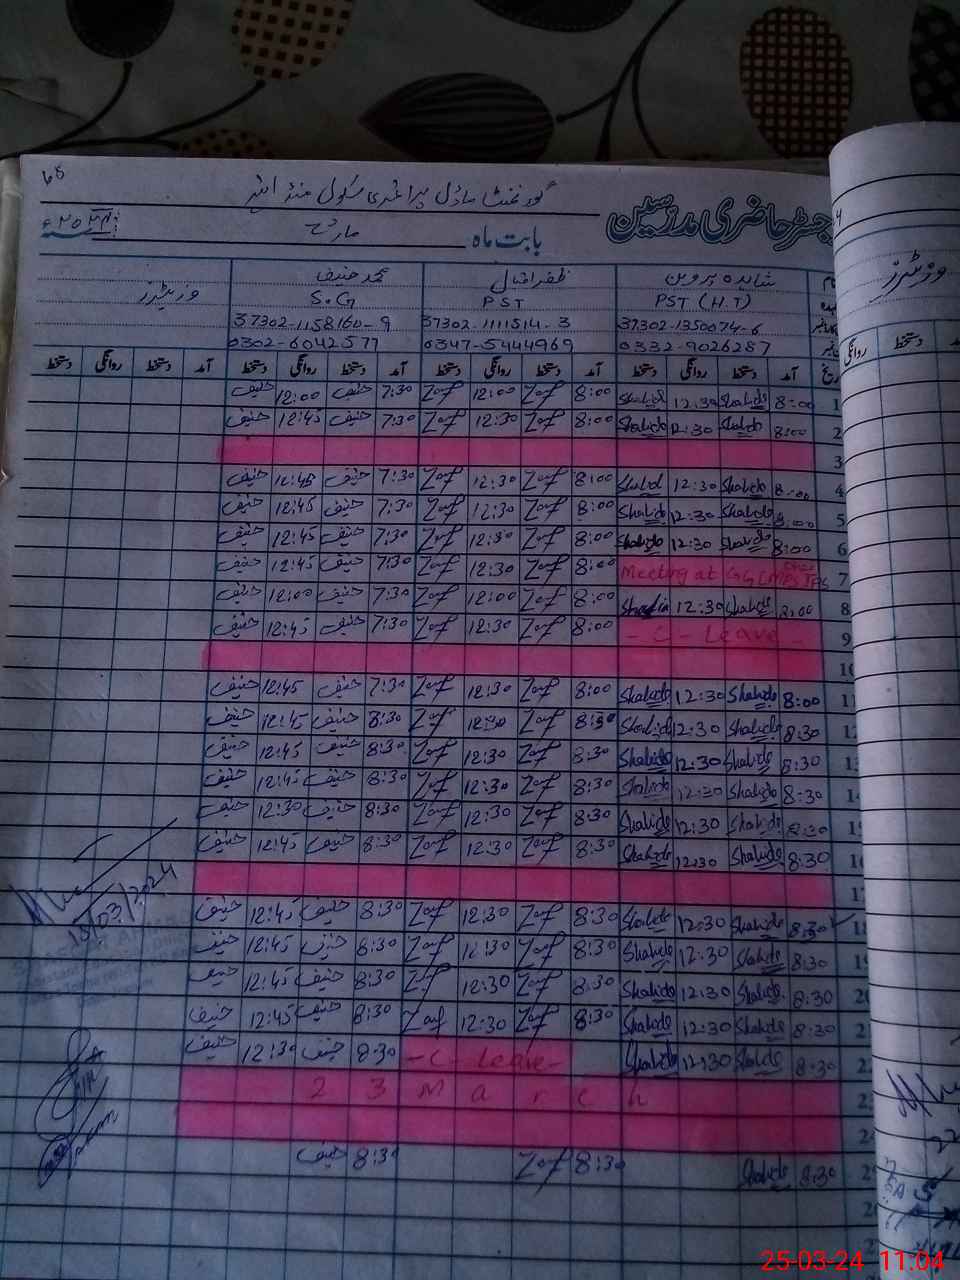 68
گورنمنٹ ماڈل پرائمری سکول
رجسٹر حاضری مدرسین
بابت ماہ مارچ ۲۰۲۴ء
شاہدہ پروین ظفر اقبال محمد حنیف وزیٹرز
PST (H.T) PST S.G
37302-1350074-6 37302-1111514-3 37302-1158160-9
0332-9026287 0347-5444969 0302-6042577
تاریخ آمد دستخط روانگی دستخط آمد دستخط روانگی دستخط آمد دستخط روانگی دستخط آمد دستخط روانگی دستخط
1 8:00 Shahida 12:30 Shahida 8:00 Zaf 12:00 Zaf 7:30 حنیف 12:00 حنیف
2 8:00 Shahida 12:30 Shahida 8:00 Zaf 12:30 Zaf 7:30 حنیف 12:45 حنیف
3
4 8:00 Shahida 12:30 Shahida 8:00 Zaf 12:30 Zaf 7:30 حنیف 12:45 حنیف
5 8:00 Shahida 12:30 Shahida 8:00 Zaf 12:30 Zaf 7:30 حنیف 12:45 حنیف
6 8:00 Shahida 12:30 Shahida 8:00 Zaf 12:30 Zaf 7:30 حنیف 12:45 حنیف
7 Meeting at 8:00 Zaf 12:30 Zaf 7:30 حنیف 12:45 حنیف
8 8:00 Shahida 12:30 Shahida 8:00 Zaf 12:00 Zaf 7:30 حنیف 12:00 حنیف
9 - C - Leave - 8:00 Zaf 12:30 Zaf 7:30 حنیف 12:45 حنیف
10
11 8:00 Shahida 12:30 Shahida 8:00 Zaf 12:30 Zaf 7:30 حنیف 12:45 حنیف
12 8:30 Shahida 12:30 Shahida 8:30 Zaf 12:30 Zaf 8:30 حنیف 12:45 حنیف
13 8:30 Shahida 12:30 Shahida 8:30 Zaf 12:30 Zaf 8:30 حنیف 12:45 حنیف
14 8:30 Shahida 12:30 Shahida 8:30 Zaf 12:30 Zaf 8:30 حنیف 12:45 حنیف
15 8:30 Shahida 12:30 Shahida 8:30 Zaf 12:30 Zaf 8:30 حنیف 12:30 حنیف
16 8:30 Shahida 12:30 Shahida 8:30 Zaf 12:30 Zaf 8:30 حنیف 12:45 حنیف
17
18 8:30 Shahida 12:30 Shahida 8:30 Zaf 12:30 Zaf 8:30 حنیف 12:45 حنیف
18/03/2024
19 8:30 Shahida 12:30 Shahida 8:30 Zaf 12:30 Zaf 8:30 حنیف 12:45 حنیف
20 8:30 Shahida 12:30 Shahida 8:30 Zaf 12:30 Zaf 8:30 حنیف 12:45 حنیف
21 8:30 Shahida 12:30 Shahida 8:30 Zaf 12:30 Zaf 8:30 حنیف 12:45 حنیف
22 8:30 Shahida 12:30 Shahida - C - Leave - 8:30 حنیف 12:30 حنیف
23 March
24
25 8:30 Shahida 8:30 Zaf 8:30 حنیف
وزیٹرز
دستخط روانگی
25-03-24 11:04